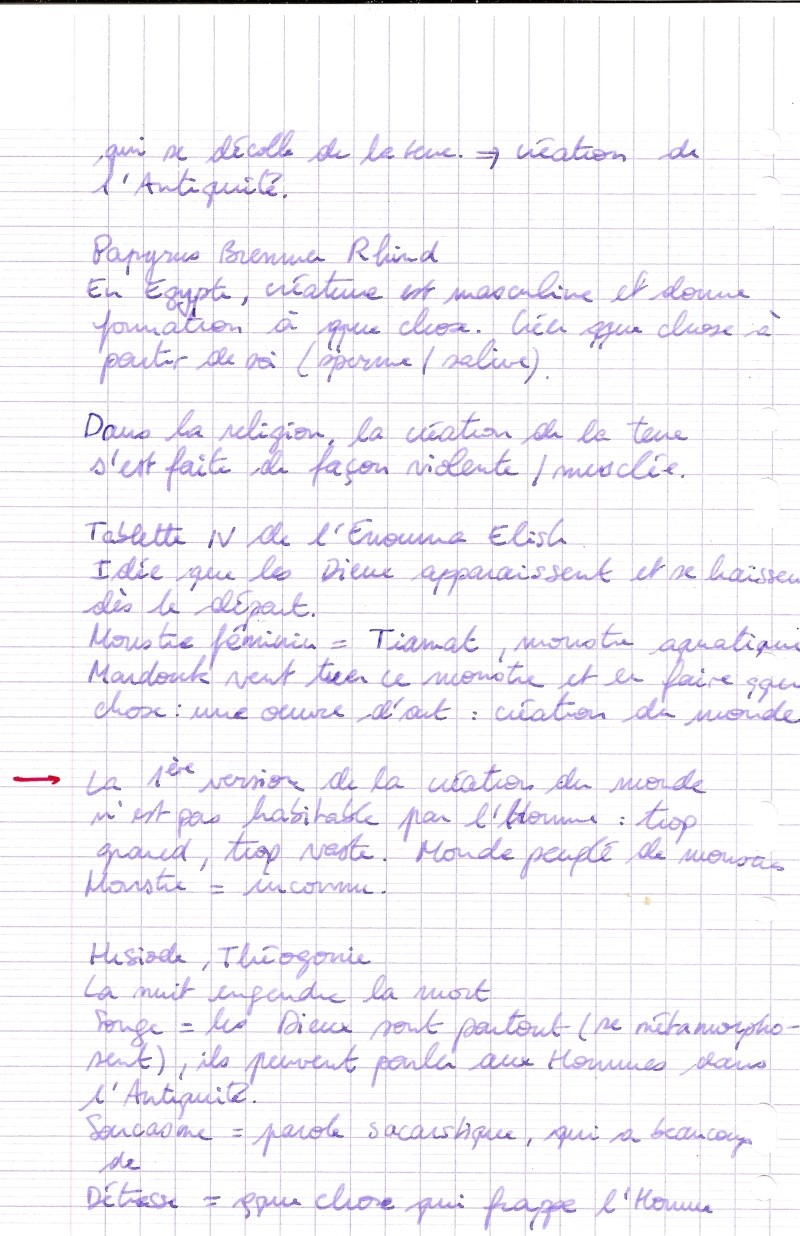 qui se décolle de la terre. ⇒ création de
l'Antiquité.
Papyrus Bremner Rhind
En Egypte, créateur est masculine et donne
formation à qque chose. Créer qque chose à
partir de soi (sperme / salive).
Dans la religion, la création de la terre
s'est faite de façon violente / musclée.
Tablette IV de l'Enouma Elish
Idée que les Dieux apparaissent et se haissen
dès le départ.
Monstre féminin = Tiamat, monstre aquatique
Mardouk vent tuer ce monstre et en faire qque
chose : une oeuvre d'art : création du monde
→ La 1ère version de la création du monde
n'est pas habitable par l'Homme : trop
grand, trop vaste. Monde peuplé de monstres
Monstre = inconnu.
Hésiode, Théogonie
La nuit engendre la mort
Songe = les Dieux sont partout (se métamorpho-
sent), ils peuvent parler aux Hommes dans
l'Antiquité.
Sarcasme = parole sacarstique, qui a beaucoup
de
Détresse = qque chose qui frappe l'Homme